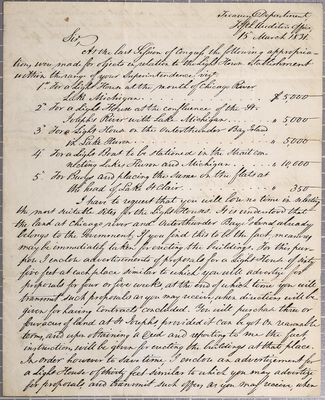 Treasury Department
Fifth Auditor's Office
15 March 1831.
Sir,
At the last Session of Congress the following appropria-
tions were made for objects in relation to the Light House establishment
within the range of your Superintendence. viz:
1st For a Light House at the mouth of Chicago River
Lake Michigan . . . . $5,000
2d For a Light House at the confluence of the St.
Josephs River with Lake Michigan . . . . " 5,000
3d For a Light House on the Outer Thunder Bay Island
in Lake Huron . . . . " 5,000
4th For a Light Boat to be stationed in the Strait con-
necting Lakes Huron and Michigan . . " 10,000
5th For Buoys and placing the same on the flats at
the head of Lake St Clair . . . " 350
I have to request that you will lose no time in selecting
the most suitable sites for the Light Houses. It is understood that
the land at Chicago river and Outer Thunder Bay Island already
belongs to the Government. If you find this to be the fact, measures
may be immediately taken for erecting the buildings. For this pur-
pose I enclose advertisements of proposals for a Light House of sixty
five feet at each place similar to which you will advertize for
proposals for four or five weeks, at the end of which time you will
transmit such proposals as you may receive, when directions will be
given for having contracts concluded. You will purchase three or
four acres of land at St Josephs provided it can be got on reasonable
terms, and upon obtaining a Deed and reporting to me the fact,
instructions will be given for erecting the buildings at that place.
In order however to save time I enclose an advertisement for
a Light House of thirty feet similar to which you may advertize
for proposals and transmit such offers as you may receive, when